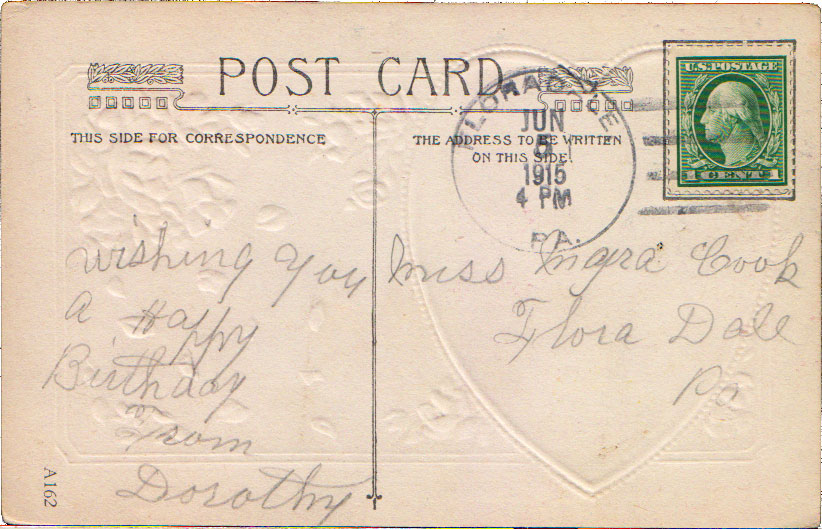 POST CARD
THIS SIDE FOR CORRESPONDENCE
THE ADDRESS TO BE WRITTEN
ON THIS SIDE.
FLORADALE
JUN
1915
4 PM
PA.
U.S. POSTAGE
1 CENT 1
Wishing You
A Happy
Birthday
From
Dorothy
Miss Cook
Flora Dale
Pa
A162